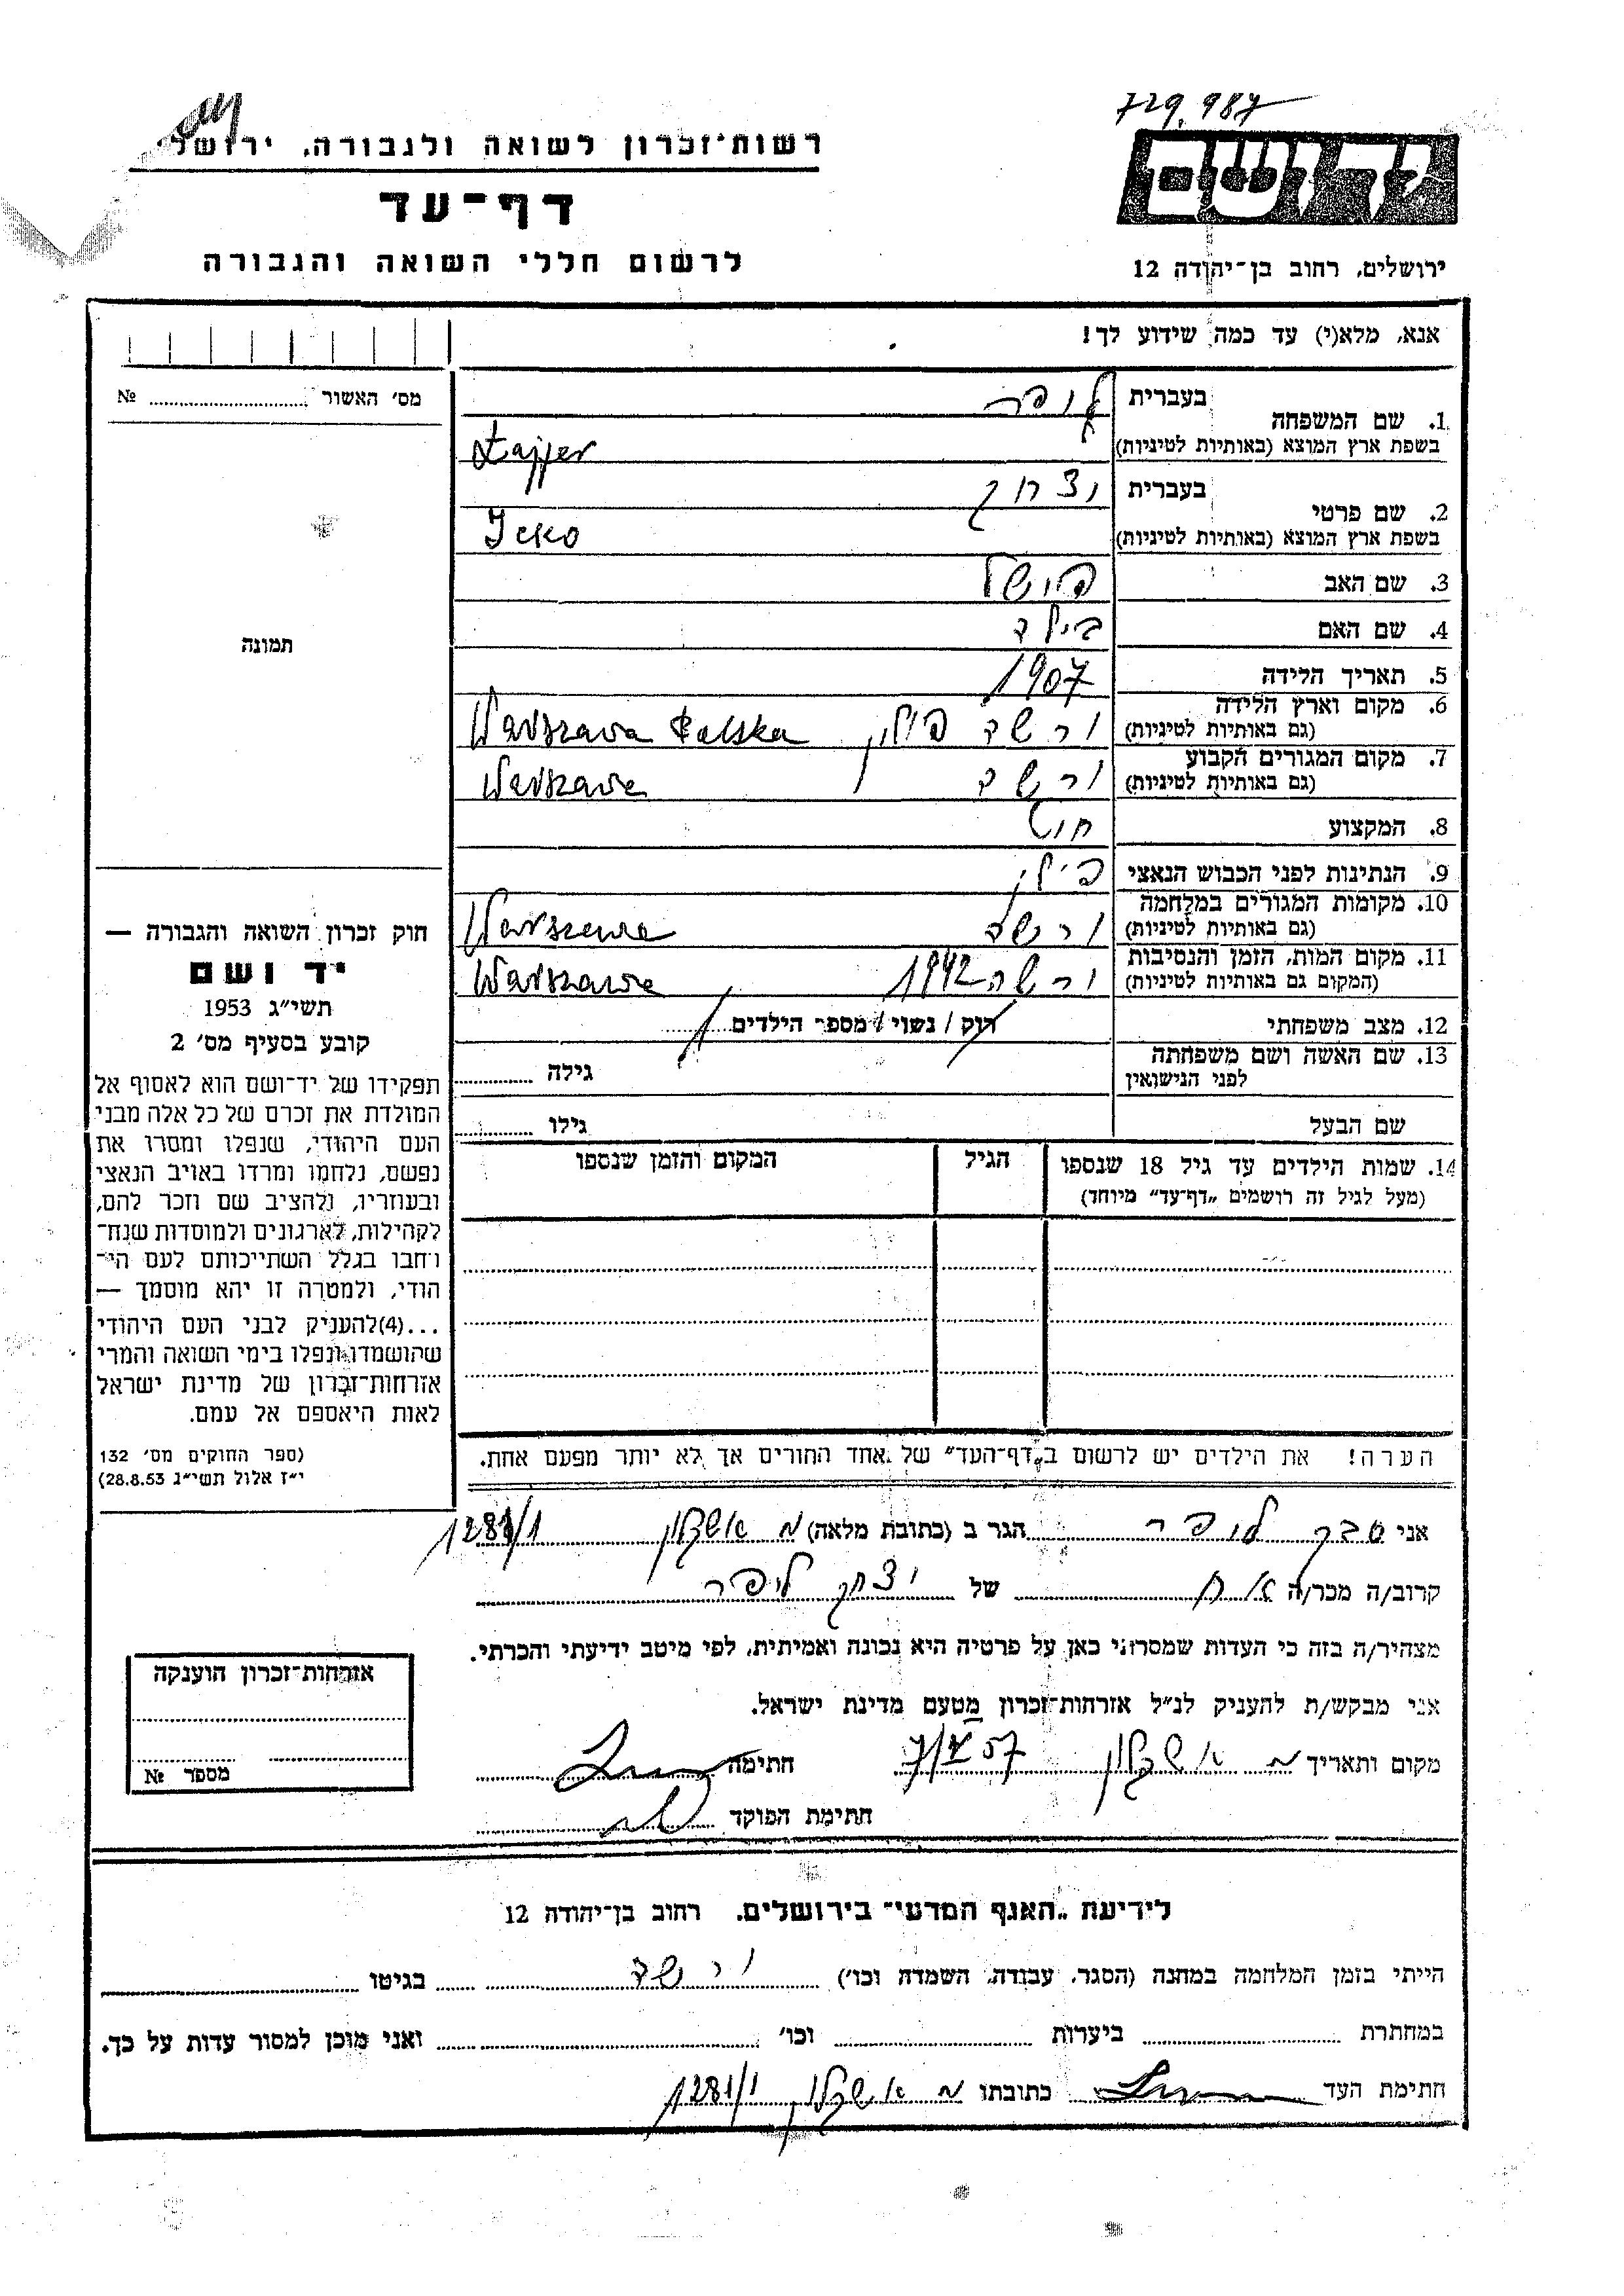 729,987
רשות־זכרון לשואה ולגבורה, ירושלי
יד ושם
דף־עד
לרשום חללי השואה והגבורה
ירושלים, רחוב בן־יהודה 12
אנא, מלא(י) עד כמה שידוע לך!
מס׳ האשור № 
1. שם המשפחה
בעברית
בשפת ארץ המוצא (באותיות לטיניות)
2. שם פרטי
בעברית יצחק
בשפת ארץ המוצא (באותיות לטיניות) Icko
3. שם האב
4. שם האם
5. תאריך הלידה 1907
6. מקום וארץ הלידה
(גם באותיות לטיניות) ורשה פולין Warszawa Polska
7. מקום המגורים הקבוע
(גם באותיות לטיניות) ורשה Warszawa
8. המקצוע
9. הנתינות לפני הכבוש הנאצי פולין
10. מקומות המגורים במלחמה
(גם באותיות לטיניות) ורשה Warszawa
11. מקום המות, הזמן והנסיבות
(המקום גם באותיות לטיניות) ורשה 1942 Warszawa
12. מצב משפחתי רוק / נשוי / מספר הילדים
13. שם האשה ושם משפחתה
לפני הנישואין גילה
שם הבעל גילו
14. שמות הילדים עד גיל 18 שנספו
(מעל לגיל זה רושמים „דף־עד״ מיוחד)
הגיל
המקום והזמן שנספו
הערה! את הילדים יש לרשום ב„דף־העד״ של אחד ההורים אך לא יותר מפעם אחת.
תמונה
חוק זכרון השואה והגבורה —
יד ושם
תשי״ג 1953
קובע בסעיף מס׳ 2
תפקידו של יד־ושם הוא לאסוף אל
המולדת את זכרם של כל אלה מבני
העם היהודי, שנפלו ומסרו את
נפשם, נלחמו ומרדו באויב הנאצי
ובעוזריו, ולהציב שם וזכר להם,
לקהילות, לארגונים ולמוסדות שנח־
רחבו בגלל השתייכותם לעם הי־
הודי, ולמטרה זו יהא מוסמך —
...(4)להעניק לבני העם היהודי
שהושמדו ונפלו בימי השואה והמרי
אזרחות־זכרון של מדינת ישראל
לאות היאספם אל עמם.
(ספר החוקים מס׳ 132
י״ז אלול תשי״ג 28.8.53)
אני הגר ב (כתובת מלאה) מ אשקלון 1281/1
קרוב/ה מכר/ה אח של יצחק
מצהיר/ה בזה כי העדות שמסרתי כאן על פרטיה היא נכונה ואמיתית, לפי מיטב ידיעתי והכרתי.
אני מבקש/ת להעניק לנ״ל אזרחות־זכרון מטעם מדינת ישראל.
מקום ותאריך מ אשקלון חתימה
חתימת הפוקד
אזרחות־זכרון הוענקה
מספר №
לידיעת „האגף המדעי״ בירושלים, רחוב בן־יהודה 12
הייתי בזמן המלחמה במחנה (הסגר, עבודה, השמדה וכו׳) ורשה בגיטו
במחתרת ביערות וכו׳ ואני מוכן למסור עדות על כך.
חתימת העד כתובתו מ אשקלון 1281/1